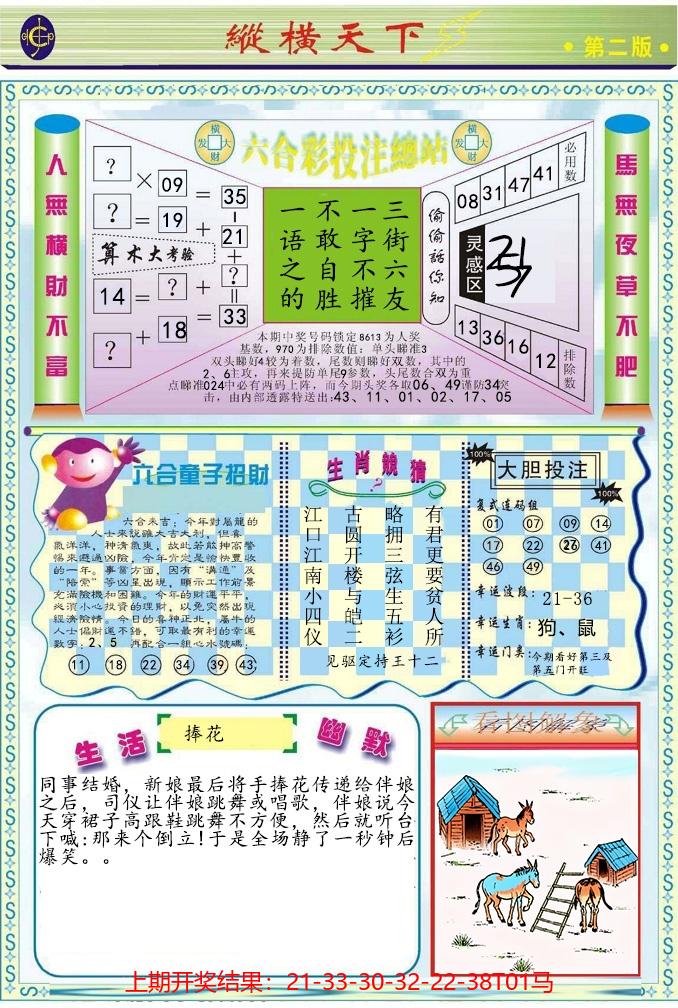 縱橫天下
·第二版·
人無橫財不富
馬無夜草不肥
横
发 大
财
六合彩投注總站
横
发 大
财
? × 09 = 35
? = 19 + 21
算术大考验
14 = ? + ?
? + 18 = 33
三街六友
一字不摧
不敢自胜
一语之的
偷偷話你知
必用数
08 31 47 41
灵感区
13 36 16 12
排除数
本期中奖号码锁定8613为人奖
基数，970为排除数值：单头睇准3
双头睇好4较为着数，尾数则睇好双数，其中的
2、6主攻，再来提防单尾9参数，头尾数合双为重
点睇准024中必有两码上阵，而今期头奖各取06、49谨防34突
击，由内部透露特送出:43、11、01、02、17、05
六合童子招財
六合来吉：今年對屬龍的
人士来說雖大吉大利，但喜
氣洋洋，神清氣爽，故此若能抻高警
惕来避過凶險，今年亦定是愉快豐收
的一年。事當方面，因有“溝通”及
“陪棠”等凶星出現，顯示工作前景
充滿險機和困難。今年的財運平平，
必須小心投資的理財，以免突然出現
經濟險情。今日的喜神正北，屬牛的
人士偏財運不錯，可取最有利的幸運
数字：2、5 再配合一组心水號碼：
11 18 22 34 39 43
生肖競猜
?
有君更要贫人所
略拥三弦生五衫
古圆开楼与皑二
江口江南小四仪
见驱定持王十二
100%
大胆投注
100%
复式连码组
01 07 09 14
17 22 26 41
46 49
幸运波段：21-36
幸运生肖：狗、鼠
幸运门类：今期看好第三及
第五门开旺
生活 捧花 幽默
同事结婚，新娘最后将手捧花传递给伴娘
之后，司仪让伴娘跳舞或唱歌，伴娘说今
天穿裙子高跟鞋跳舞不方便，然后就听台
下喊:那来个倒立!于是全场静了一秒钟后
爆笑。。
上期开奖结果：21-33-30-32-22-38T01马